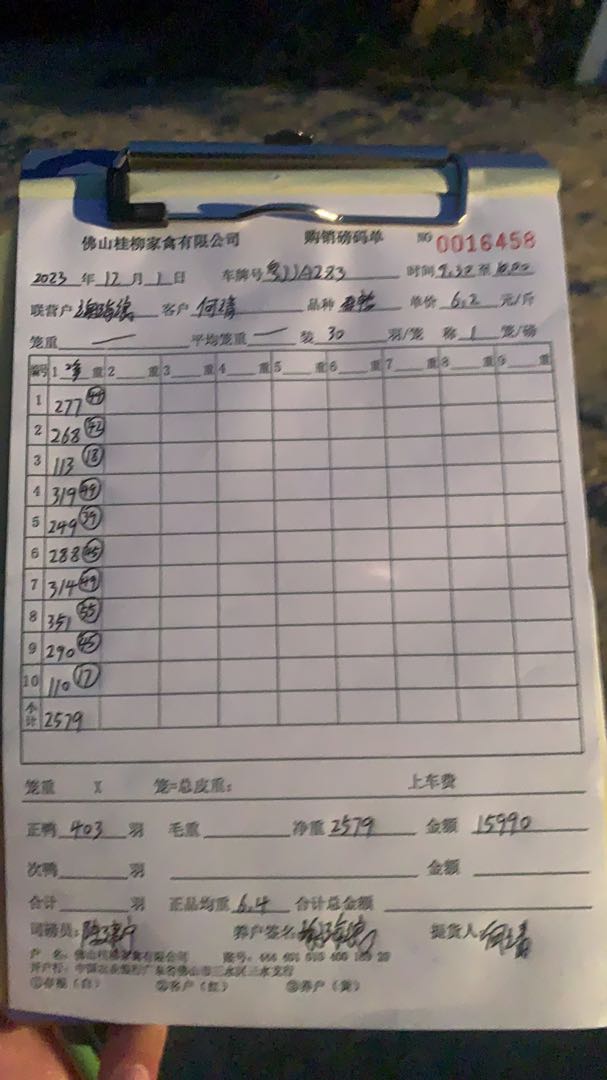 佛山桂柳家禽有限公司 购销磅码单 NO 0016458
2023 年 12 月 1 日 车牌号 粤JJA283 时间 9.30 至 10.00
联营户 客户 何清 品种 单价 6.2 元/斤
笼重 — 平均笼重 — 装 30 羽/笼 称 1 笼/磅
编号 1 净 重 2 重 3 重 4 重 5 重 6 重 7 重 8 重 9 重
1 277
2 268 42
3 113 18
4 319 49
5 249 39
6 288 45
7 314 49
8 351 55
9 290 45
10 110 17
小计 2579
笼重 X 笼=总皮重: 上车费
正鸭 403 羽 毛重 净重 2579 金额 15990
次鸭 羽 金额
合计 羽 正品均重 6.4 合计总金额
司磅员: 养户签名 提货人 何清
户 名: 佛山桂柳家禽有限公司 账号:
开户行: 中国农业银行广东省佛山市三水区三水支行
①存根(白) ②客户(红) ③养户(黄)